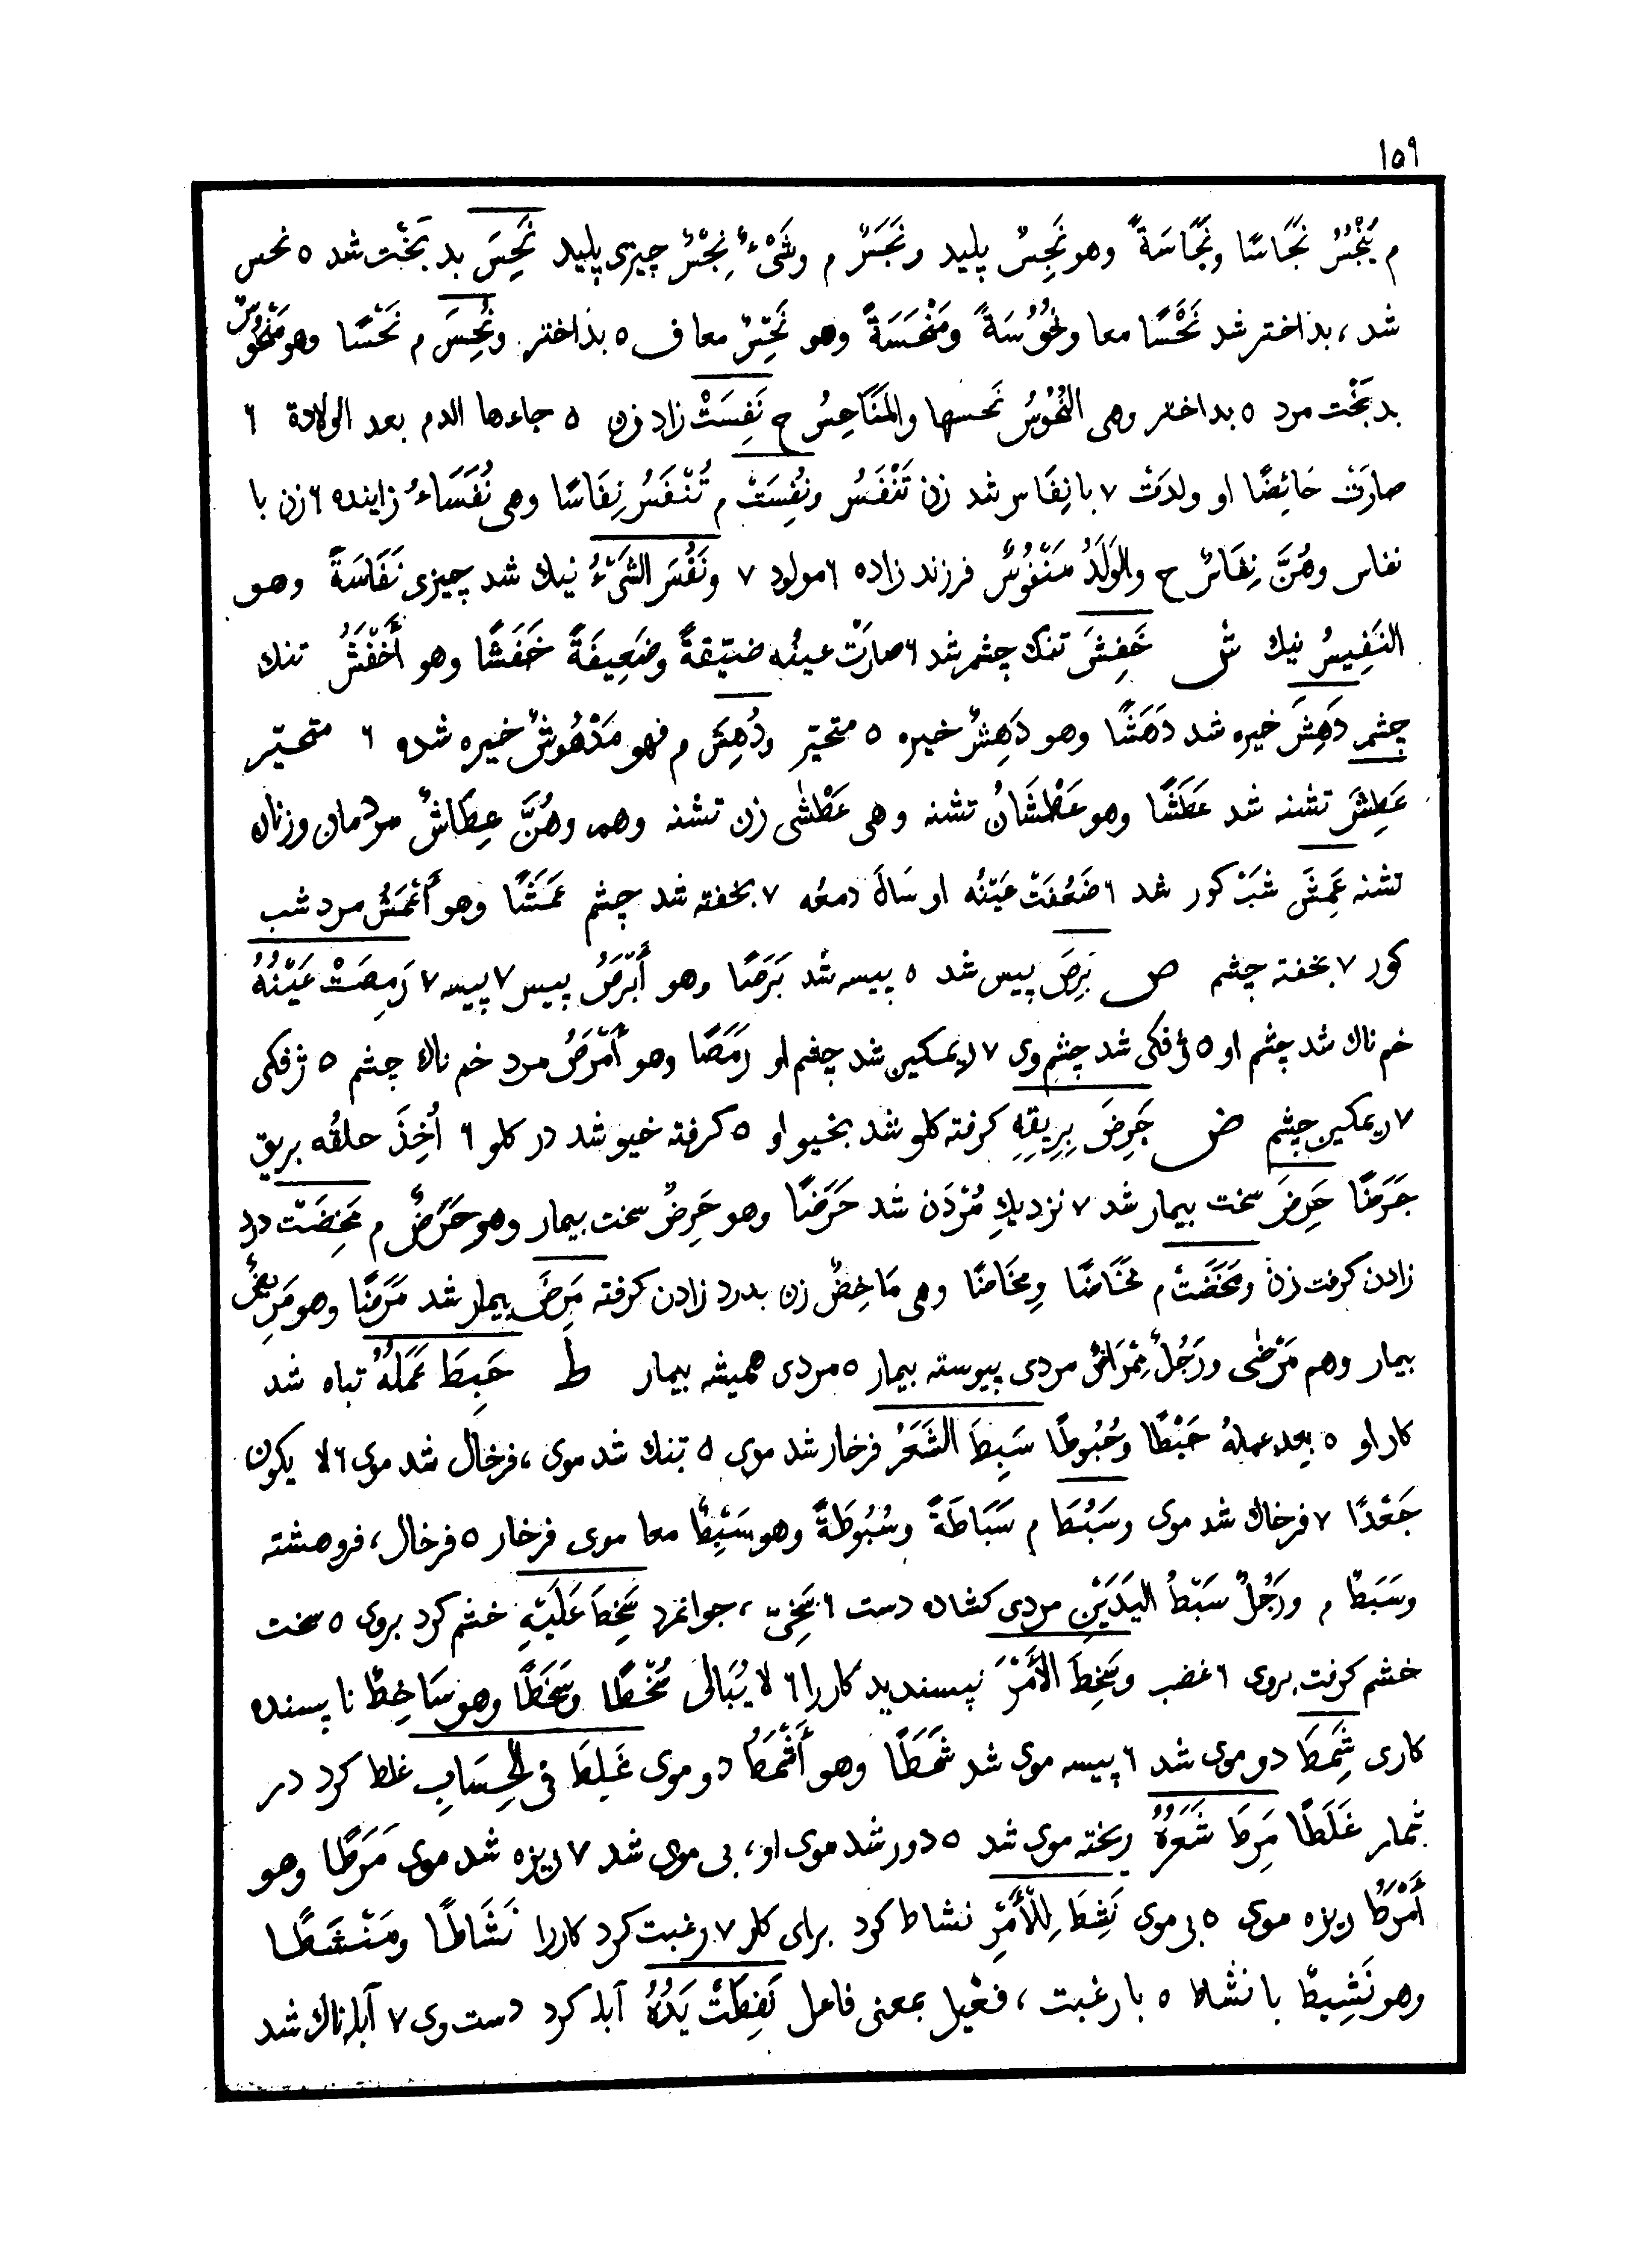 ١٥٩
م يَنْجُسُ نَجَاسًا ونَجَاسَةً وهو نَجِسٌ پليد ونَجَسٌ م وشَىْءٌ نِجْسٌ چيزى پليد نَحِسَ بد بَخْت شد ٥ نحس
شد، بذاختر شد نَحْسًا معا ونُحُوسَةً ومَنْحَسَةً وهو نَحِسٌ معا ف ٥ بذاختر ونُحِسَ م نَحْسًا وهو مَنْحُوسٌ
بدبَخْت مرد ٥ بداختر وهى النُّحُوسُ نَحسها والمَنَاحِسُ ج نَفِسَتْ زاد زن ٥ جاءها الدم بعد الولادة ٦
صارَتْ حَائِضًا او ولدَتْ ٧ بانِفَاس شد زن تَنْفَسُ ونُفِسَتْ م تُنْفَسُ نِفَاسًا وهى نُفَسَاءُ زاينده ٦ زن با
نفاس وهُنَّ نِفَاسٌ ج والوَلَدُ مَنْفُوسٌ فرزند زاده ٦ مولود ٧ ونَفُسَ الشَىْءُ نيك شد چيزى نَفَاسَةً وهو
النَفِيسُ نيك ش خَفِشَ تنك چشم شد ٦ صارَتْ عينُه ضَيِّقةً وضَعِيفَةً خَفَشًا وهو أَخْفَشُ تنك
چشم دَهِشَ خيره شد دَهَشًا وهو دَهِشٌ خيره ٥ متحيّر ودُهِشَ م فهو مَدْهُوشٌ خيره شده ٦ متحيّر
عَطِشَ تشنه شد عَطَشًا وهو عَطْشَانُ تشنه وهى عَطْشٰى زن تشنه وهم وهُنَّ عِطَاشٌ مردمان وزنان
تشنه عَمِشَ شبْ كور شد ٦ ضَعُفَتْ عَيْنُه او سَالَ دمعُه ٧ بخفته شد چشم عَمَشًا وهو أَعْمَشُ مرد شب
كور ٧ بخفته چشم ص بَرِصَ پيس شد ٥ پيسه شد بَرَصًا وهو أَبْرَصُ پيس ٧ پيسه ٧ رَمِصَتْ عَيْنُهُ
خم ناك شد چشم او ٥ ژفكى شد چشم وى ٧ ريمكين شد چشم او رَمَصًا وهو أَرْمَصُ مرد خم ناك چشم ٥ ژفكى
٧ ريمكين چشم ض جَرِضَ بِرِيقِهِ كرفته كلو شد بخيو او ٥ كرفته خيو شد در كلو ٦ أُخِذَ حلقُه بريق
جَرَضًا حَرِضَ سخت بيمار شد ٧ نزديكِ مُرْدَن شد حَرَضًا وهو حَرِضٌ سخت بيمار وهو حَرَضٌ م مَخِضَتْ درد
زادن كرفت زن ومَخَضَتْ م مَخَاضًا ومِخَاضًا وهى مَاخِضٌ زن بدرد زادن كرفته مَرِضَ بيمار شد مَرَضًا وهو مَرِيضٌ
بيمار وهم مَرْضٰى ورَجُلٌ مِمْرَاضٌ مردى پيوسته بيمار ٥ مردى هميشه بيمار ط حَبِطَ عَمَلُهُ تباه شد
كار او ٥ بعد عملهُ حَبْطًا وحُبُوطًا سَبِطَ الشَعَرُ فرخار شد موى ٥ تنك شد موى، فرخال شد موى ٦ لا يكون
جَعْدًا ٧ فرخاك شد موى وسَبُطَ م سَبَاطَةً وسُبُوطَةً وهو سَبِطٌ معا موى فرخار ٥ فرخال، فروهشته
وسَبَطٌ م ورَجُلٌ سَبْطُ اليَدَيْنِ مردى كشاده دست ٦ سَخِىّ، جوانمرد سَخِطَ عَلَيْهِ خشم كرد بروى ٥ سخت
خشم كرفت بروى ٦ غضب وسَخِطَ الأَمْرَ نپسنديد كاررا ٦ لا يُبَالى سُخْطًا وسَخَطًا وهو سَاخِطٌ نا پسنده
كارى شَمِطَ دوموى شد ٦ پيسه موى شد شَمَطًا وهو أَشْمَطُ دوموى غَلِطَ فى الحِسَابِ غلط كرد در
شمار غَلَطًا مَرِطَ شَعَرُهُ ريخته موى شد ٥ دور شد موى او، بى موى شد ٧ ريزه شد موى مَرَطًا وهو
أَمْرَطُ ريزه موى ٥ بى موى نَشِطَ لِلْأَمْرِ نشاط كرد براى كار ٧ رغبت كرد كاررا نَشَاطًا ومَنْشَطًا
وهو نَشِيطٌ با نشاط ٥ با رغبت، فعيل بمعنى فاعل نَفِطَتْ يَدُهُ آبله كرد دست وى ٧ آبله ناك شد